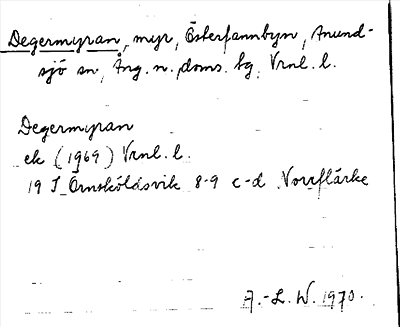 Degermyran, myr, Österfannbyn, Anund-
sjö sn, Ång. n. doms. bg. Vrnl. l.
Degermyran
ek (1969) Vrnl. l.
19 I Örnsköldsvik 8-9 c-d Norrflärke
A.-L. W. 1970.